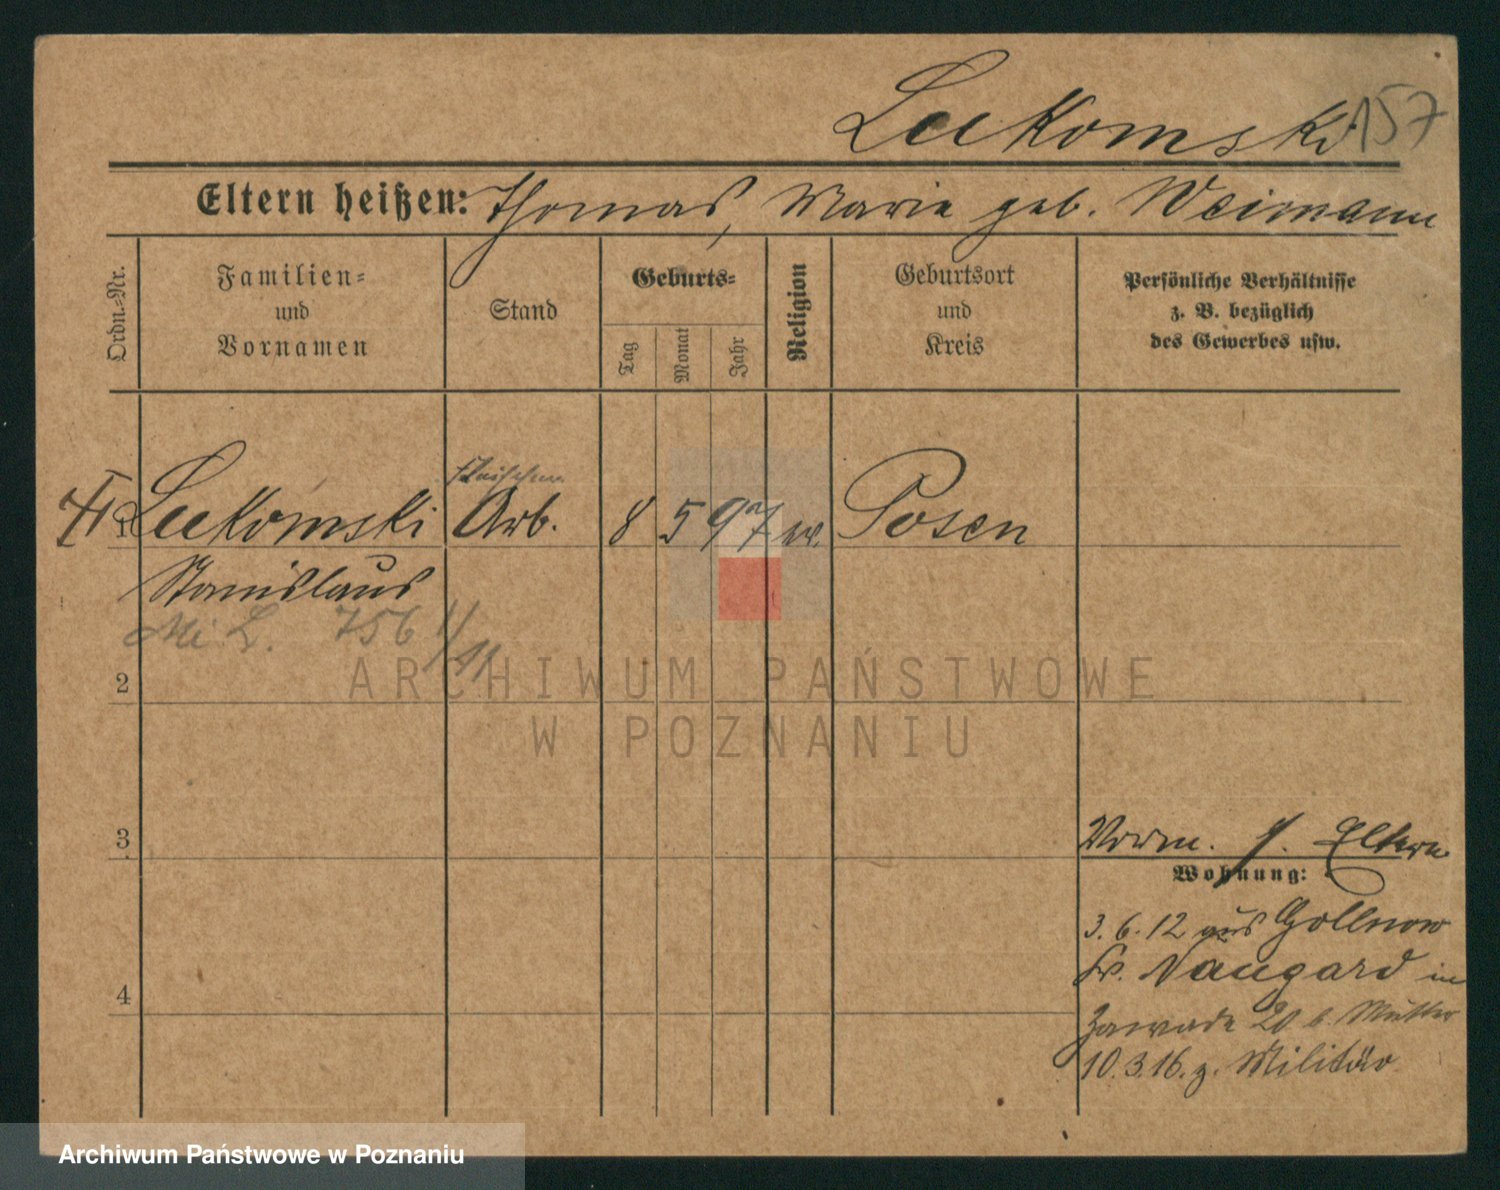 Lukomski 157
Eltern heißen: Thomas, Marie geb. Weimann
Ordn.-Nr.
Familien-
und
Vornamen
Stand
Geburts-
Tag
Monat
Jahr
Religion
Geburtsort
und
Kreis
Persönliche Verhältnisse
z. B. bezüglich
des Gewerbes usw.
1 Lukomski Arb. 8 5 97 Posen
Stanislaus
Mi L. 756
2
ARCHIWUM PAŃSTWOWE
W POZNANIU
3
Vorm. s. Eltern
Wohnung:
3. 6. 12 aus Gollnow
Kr. Naugard in
4
Zawade 20 b. Mutter
10.3.16. z. Militär
Archiwum Państwowe w Poznaniu